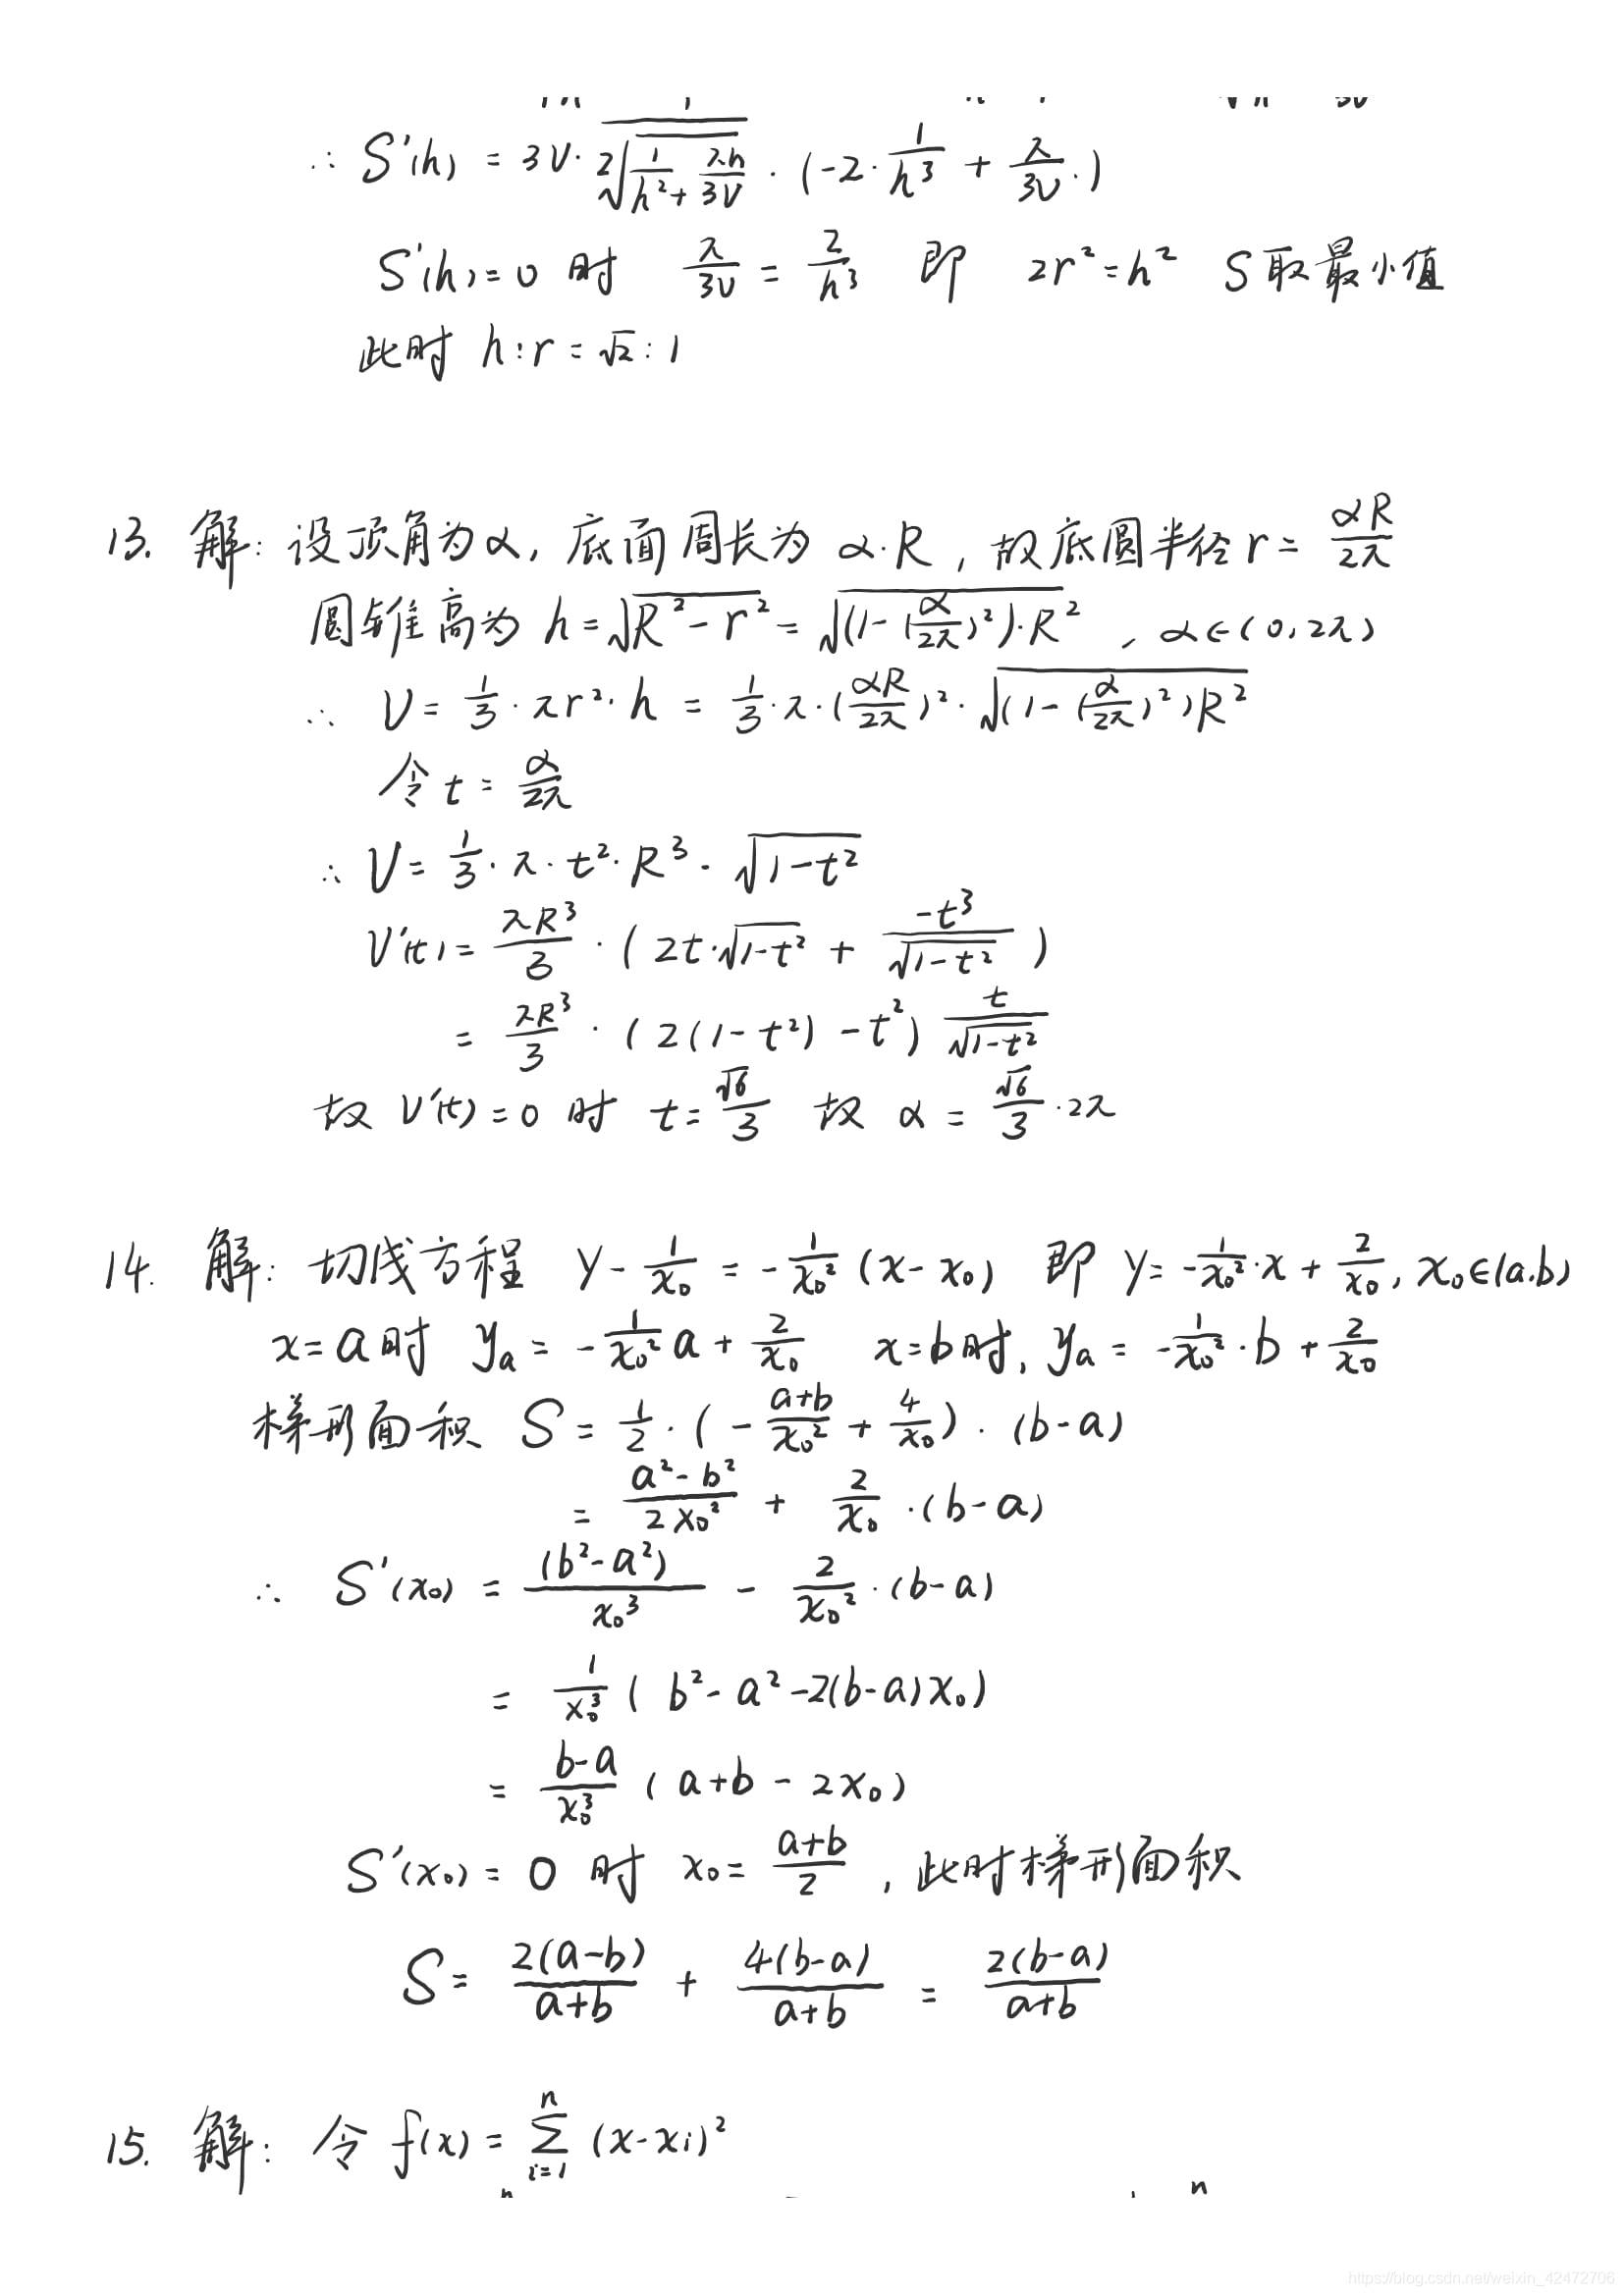 ∴ S'(h) = 3V · 1/(2√(1/h² + πh/3V)) · (-2 · 1/h³ + π/3V ·)
S'(h) = 0 时 π/3V = 2/h³ 即 2r² = h² S取最小值
此时 h:r = √2 : 1
13. 解: 设顶角为α, 底面周长为 α·R, 故底圆半径 r = αR/2π
圆锥高为 h = √(R² - r²) = √((1 - (α/2π)²)·R²), α∈(0, 2π)
∴ V = 1/3 · πr² · h = 1/3 · π · (αR/2π)² · √((1 - (α/2π)²)R²)
令 t = α/2π
∴ V = 1/3 · π · t² · R³ · √(1-t²)
V'(t) = πR³/3 · (2t·√(1-t²) + -t³/√(1-t²))
= πR³/3 · (2(1-t²) - t²) t/√(1-t²)
故 V'(t) = 0 时 t = √6/3 故 α = √6/3 · 2π
14. 解: 切线方程 y - 1/x₀ = -1/x₀² (x - x₀) 即 y = -1/x₀² · x + 2/x₀, x₀∈(a,b)
x = a时 yₐ = -1/x₀² a + 2/x₀ x = b时, yₐ = -1/x₀² · b + 2/x₀
梯形面积 S = 1/2 · (-(a+b)/x₀² + 4/x₀) · (b-a)
= (a²-b²)/2x₀² + 2/x₀ · (b-a)
∴ S'(x₀) = (b²-a²)/x₀³ - 2/x₀² · (b-a)
= 1/x₀³ (b² - a² - 2(b-a)x₀)
= (b-a)/x₀³ (a+b - 2x₀)
S'(x₀) = 0 时 x₀ = (a+b)/2, 此时梯形面积
S = 2(a-b)/(a+b) + 4(b-a)/(a+b) = 2(b-a)/(a+b)
15. 解: 令 f(x) = Σᵢ₌₁ⁿ (x - xᵢ)²
https://blog.csdn.net/weixin_42472706